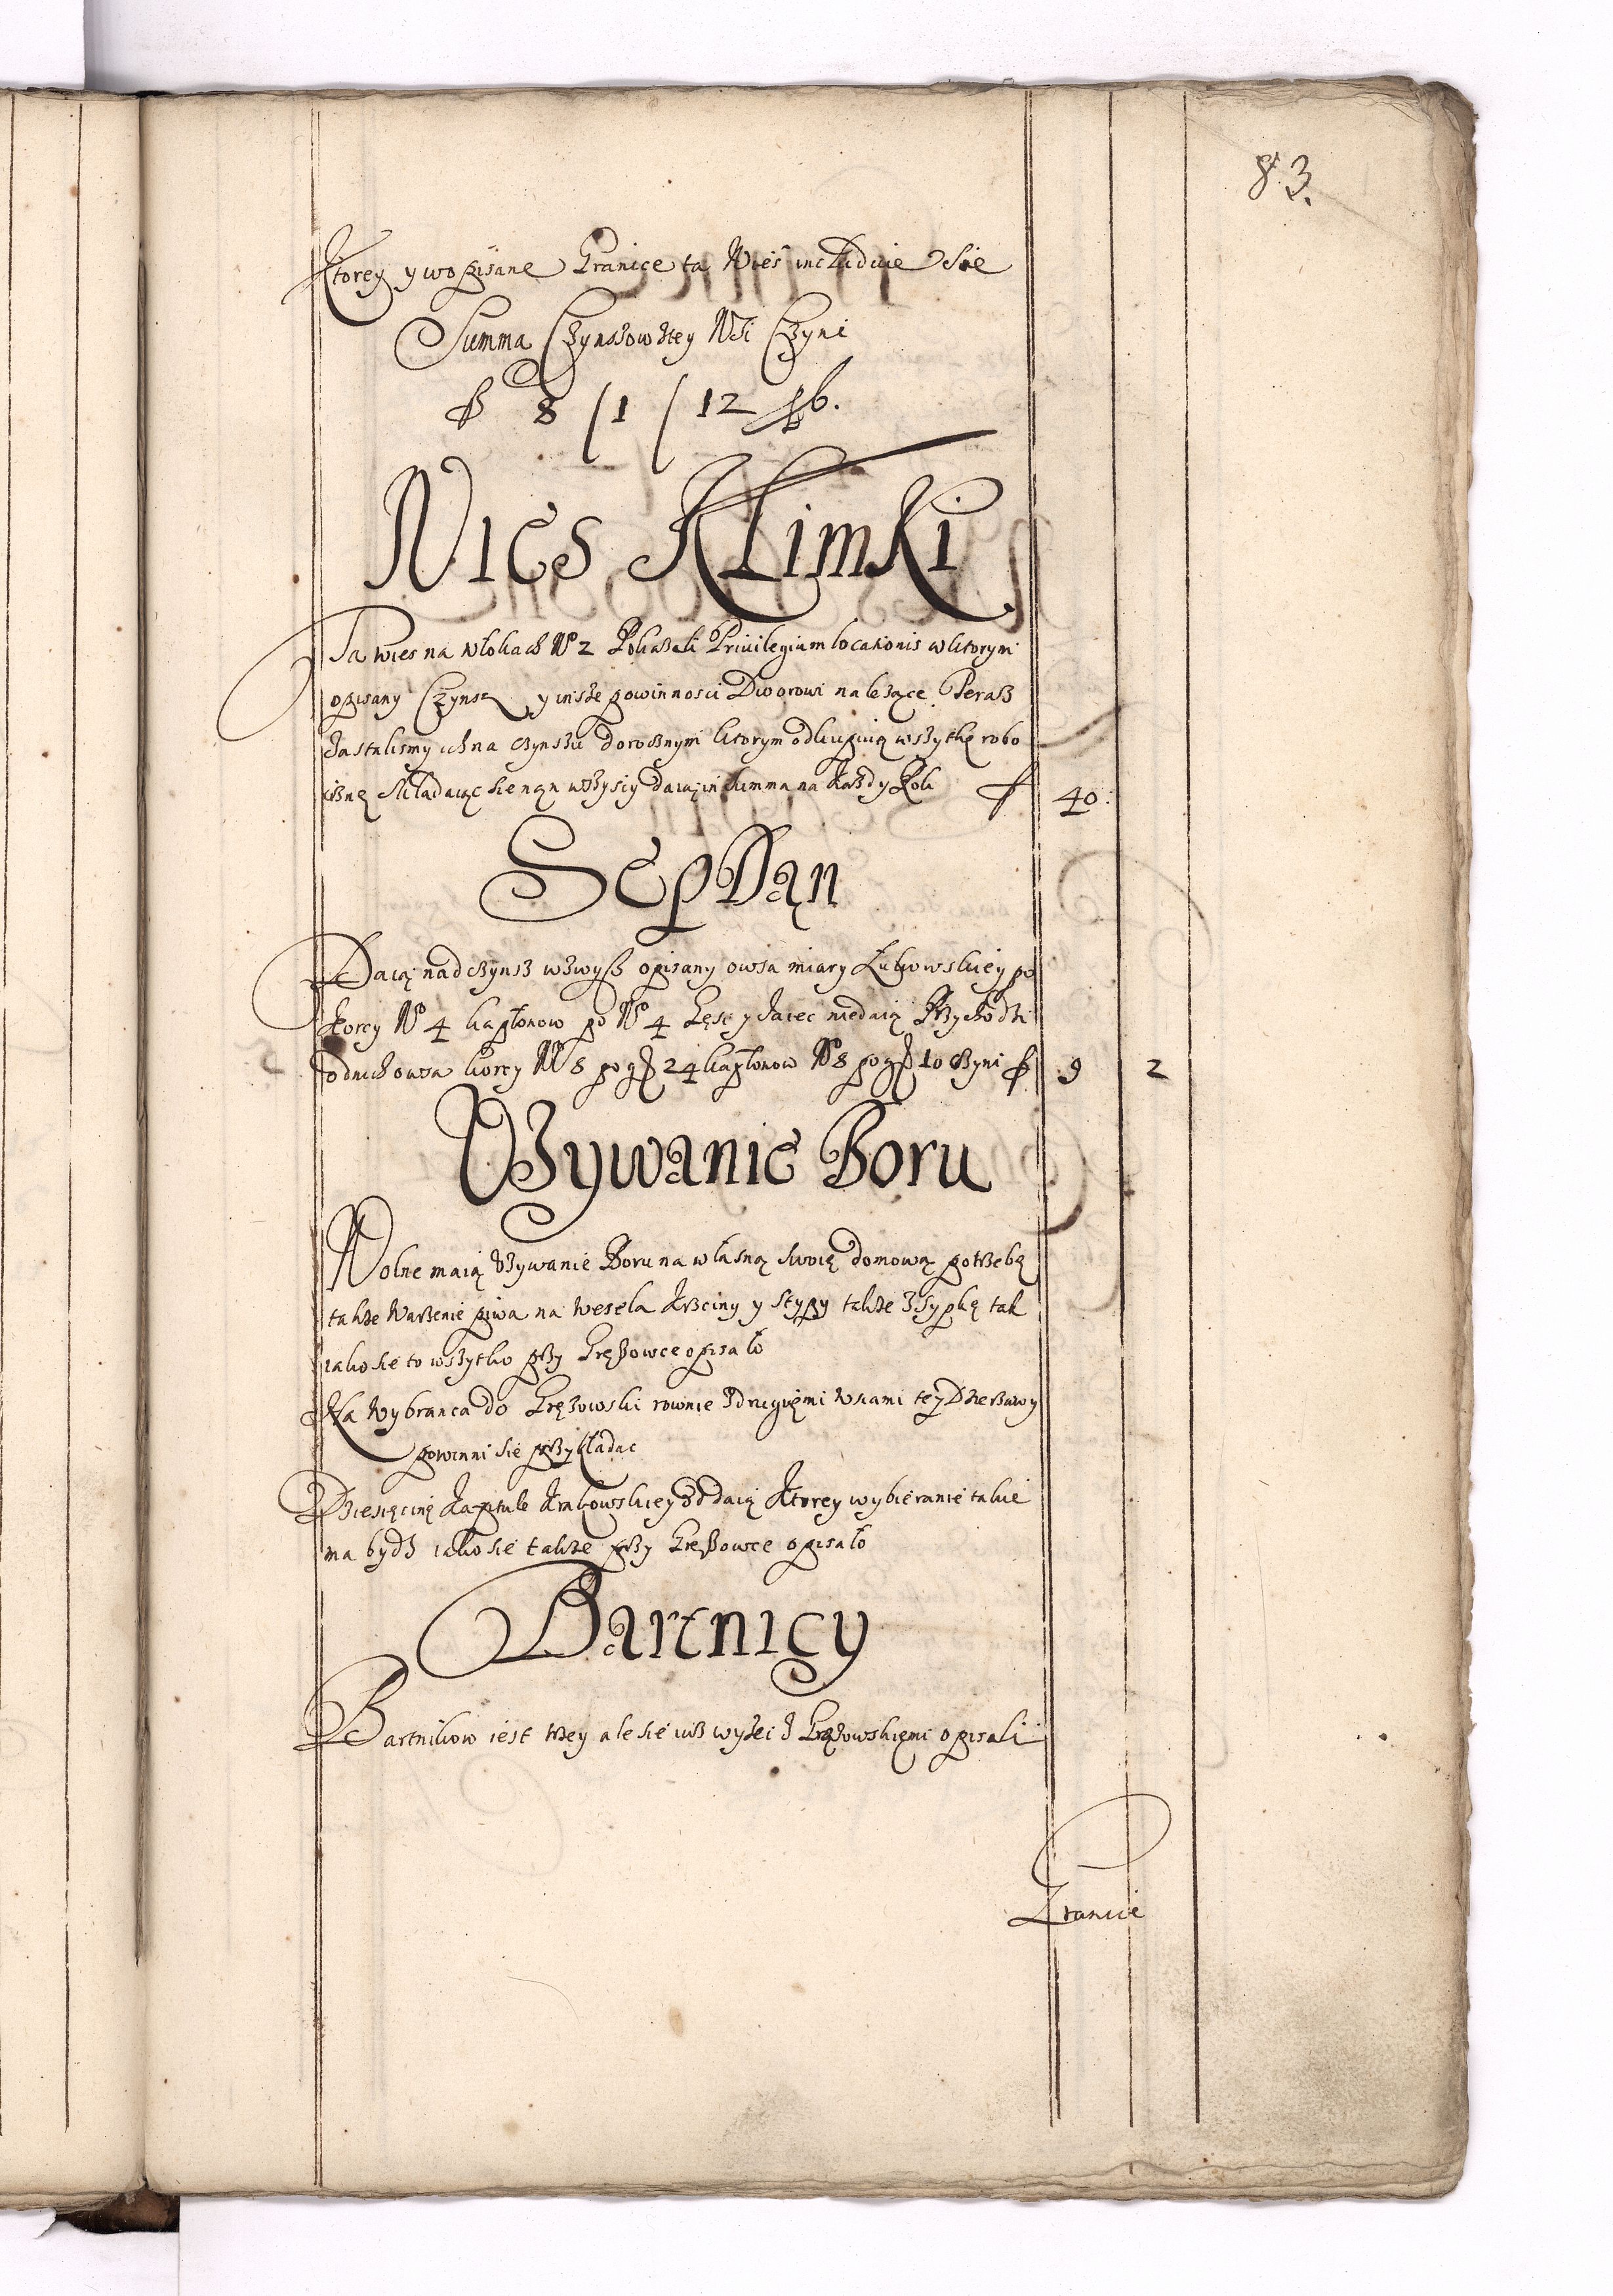 83.
Ktorey y wopisane Granice ta Wies includuie Sie
Summa Czynszow tey Wsi Czyni
f 8 / 1 / 12
Wies Klimki
Ta wies na włokach No 2 Pokazali Priuilegium locationis w ktorym
opisany Czynsz y insze powinnosci Dworowi nalezące Teraz
Zastalismy ich na czynszu dorocznym ktorym odkupuią wszytkę robo
ciznę Składaiąc sie nąn wszyscy daią in summa na Kazdy Rok f 40.
Sep Dąn
Daią nad czynsz wzwysz opisany owsa miary Łukowskiey po
Korcy No 4 kapłonow po No 4 Gęsi y Jaiec niedaią Przychodzi
od nich owsa korcy No 8 po gr 24 kapłonow No 8 po gr 10 czyni f 9 2
Vzywanie Boru
Wolne maią Vzywanie Boru na własną swoię domową potrzebę
takze Warzenie piwa na Wesela Krzciny y Stypy takze Zsypkę tak
iako sie to wszytko przy Gręzowce opisało
Na Wybranca do Gręzowki rownie z drugięmi Wsiami tey Dzerzawy
powinni sie przykładac
Dziesięcinę Kapitule Krakowskiey oddaią Ktorey wybieranie takie
ma bydz iako sie takze przy Gręzowce opisało
Bartnicy
Bartnikow iest trzey ale sie iuz wyzei z Gręzowskięmi opisali
Granice